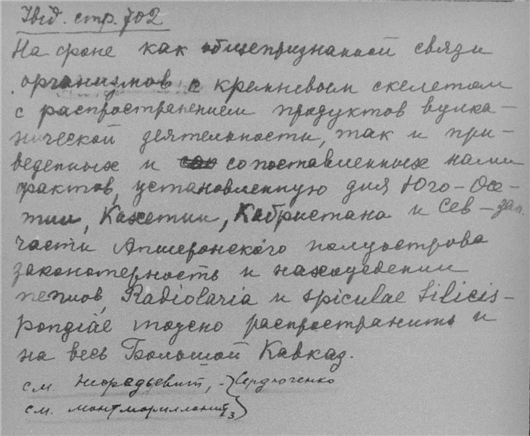 Ibid. стр. 702
На фоне как общепризнанной связи
организмов с кремневым скелетом
с распространением продуктов вулка-
нической деятельности, так и при-
веденных и сопоставленных нами
фактов, установленную для Юго-Осе-
тии, Кахетии, Кабристана и Сев-зап.
части Апшеронского полуострова
закономерность в нахождении
пеплов, Radiolaria и spiculae Silicis-
pongiae можно распространить и
на весь Большой Кавказ.
см. Сердюченко
см. монтмориллонит